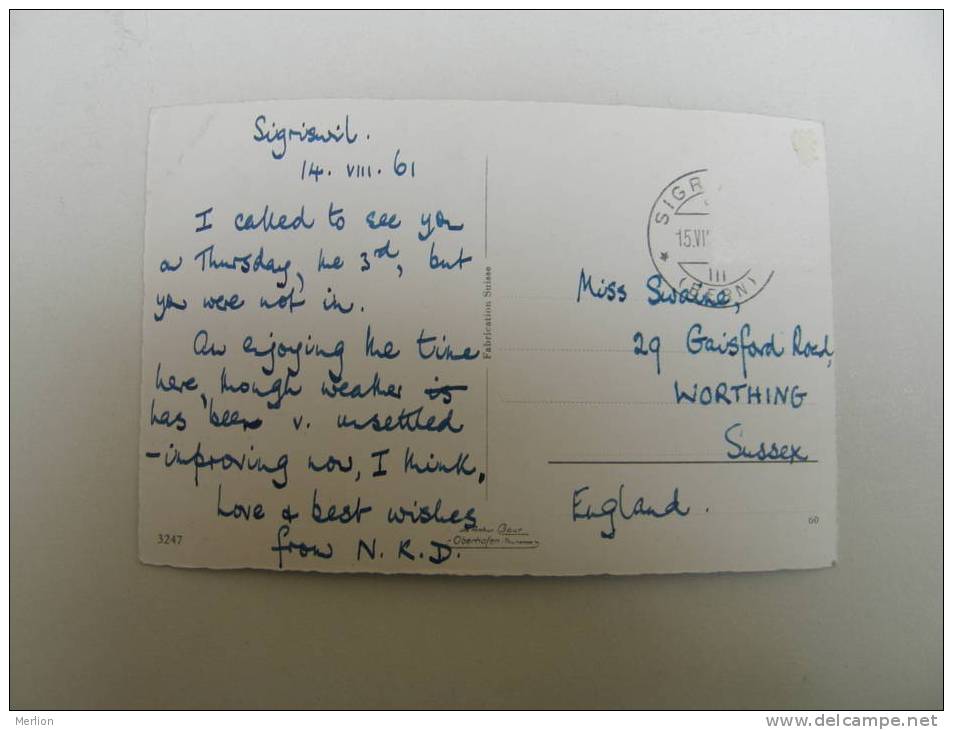 Sigriswil.
14. VIII. 61
I called to see you
on Thursday, the 3rd, but
you were not in.
Am enjoying the time
here, though weather is
has been v. unsettled
- improving now, I think.
Love & best wishes
from N. K. D.
3247
Fabrication Suisse
Oberhofen
SIGR
15.VI
III
(BERN)
Miss Swaine,
29 Gaisford Road,
WORTHING
Sussex
England.
60
Merlion
www.delcampe.net